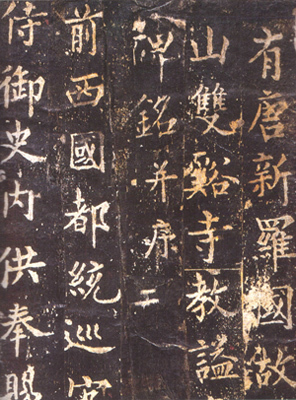 有唐新羅國故
山雙谿寺教謚
碑銘并序
前西國都統巡官
侍御史內供奉賜